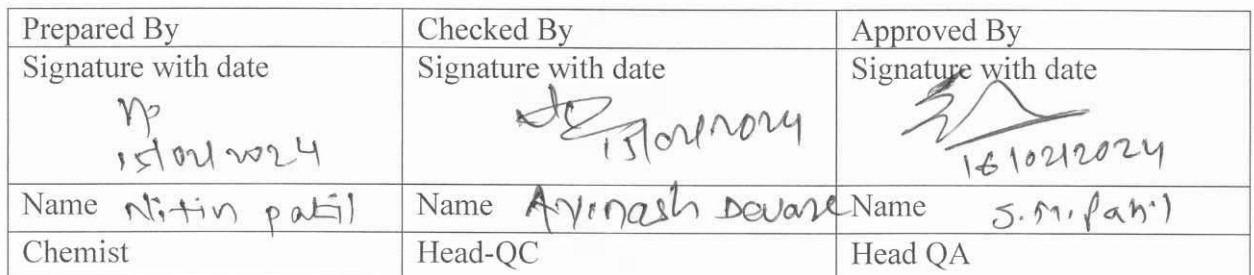 Prepared By Checked By Approved By
Signature with date Signature with date Signature with date
15/02/2024 15/02/2024 16/02/2024
Name Nitin patil Name Avinash Devare Name S.M. Patil
Chemist Head-QC Head QA